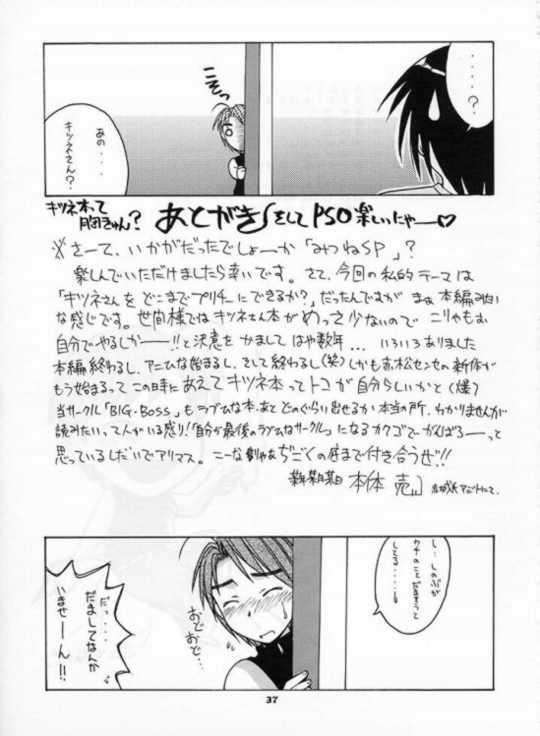 ・・・・？
こそっ
あの・・・
キツネさん？
キツネ本って
胸きゅん？
あとがき
PSO楽しいにゃー♡
※さーて、いかがだったでしょーか「みつねSP」？
楽しんでいただけましたら幸いです。さて、今回の私的テーマは
「キツネさんをどこまでプリチーにできるか？」だったんですが まぁ 本編み
な感じです。世間様ではキツネさん本がめっさ少ないので こりゃもぉ
自分でやるしかーー!!と決意をかましてはや数年… いろいろありました
本編終わるし、アニひな始まるし、そして終わるし(笑)しかも赤松センセの新作が
もう始まるって この時にあえてキツネ本ってトコが自分らしいかと(爆)
当サークル「BIG・BOSS」もラブひな本、あと どのぐらい出せるか本当の所、わかりませんが
読みたいって人がいる限り!「自分が最後のラブひなサークル」になるカクゴでがんばろーーっと
思っているしだいでアリマス。こーなりゃぁぢごくの底まで付き合うぜ!!
本体 売
し・・しのぶが
してる・・・・
おど
おど・・
だっ・・・
だましてなんか
いませーん!!
37